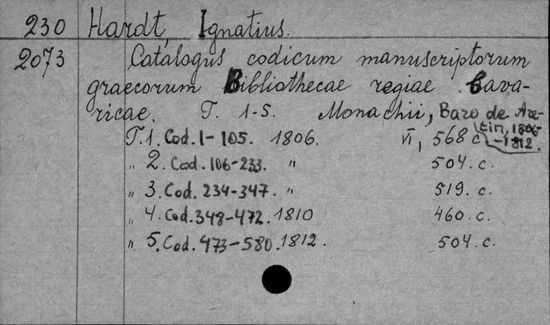 230 Hardt, Ignatius.
2073 Catalogus codicum manuscriptorum
graecorum Bibliothecae regiae Bava-
ricae. T. 1-5. Monachii, Baro de Are-
tin, 1806
-1812.
T. 1. Cod. 1-105. 1806. VI, 568 c.
„ 2. Cod. 106-233. „ 504. c.
„ 3. Cod. 234-347. „ 519. c.
„ 4. Cod. 348-472. 1810 460. c.
„ 5. Cod. 473-580. 1812. 504. c.